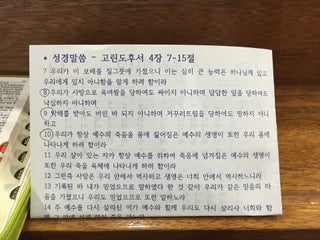 * 성경말씀 - 고린도후서 4장 7-15절
7 우리가 이 보배를 질그릇에 가졌으니 이는 심히 큰 능력은 하나님께 있고
우리에게 있지 아니함을 알게 하려 함이라
8 우리가 사방으로 욱여쌈을 당하여도 싸이지 아니하며 답답한 일을 당하여도
낙심하지 아니하며
9 박해를 받아도 버린 바 되지 아니하며 거꾸러뜨림을 당하여도 망하지 아니
하고
10 우리가 항상 예수의 죽음을 몸에 짊어짐은 예수의 생명이 또한 우리 몸에
나타나게 하려 함이라
11 우리 살아 있는 자가 항상 예수를 위하여 죽음에 넘겨짐은 예수의 생명이
또한 우리 죽을 육체에 나타나게 하려 함이라
12 그런즉 사망은 우리 안에서 역사하고 생명은 너희 안에서 역사하느니라
13 기록된 바 내가 믿었으므로 말하였다 한 것 같이 우리가 같은 믿음의 마
음을 가졌으니 우리도 믿었으므로 또한 말하노라
14 주 예수를 다시 살리신 이가 예수와 함께 우리도 다시 살리사 너희와 함